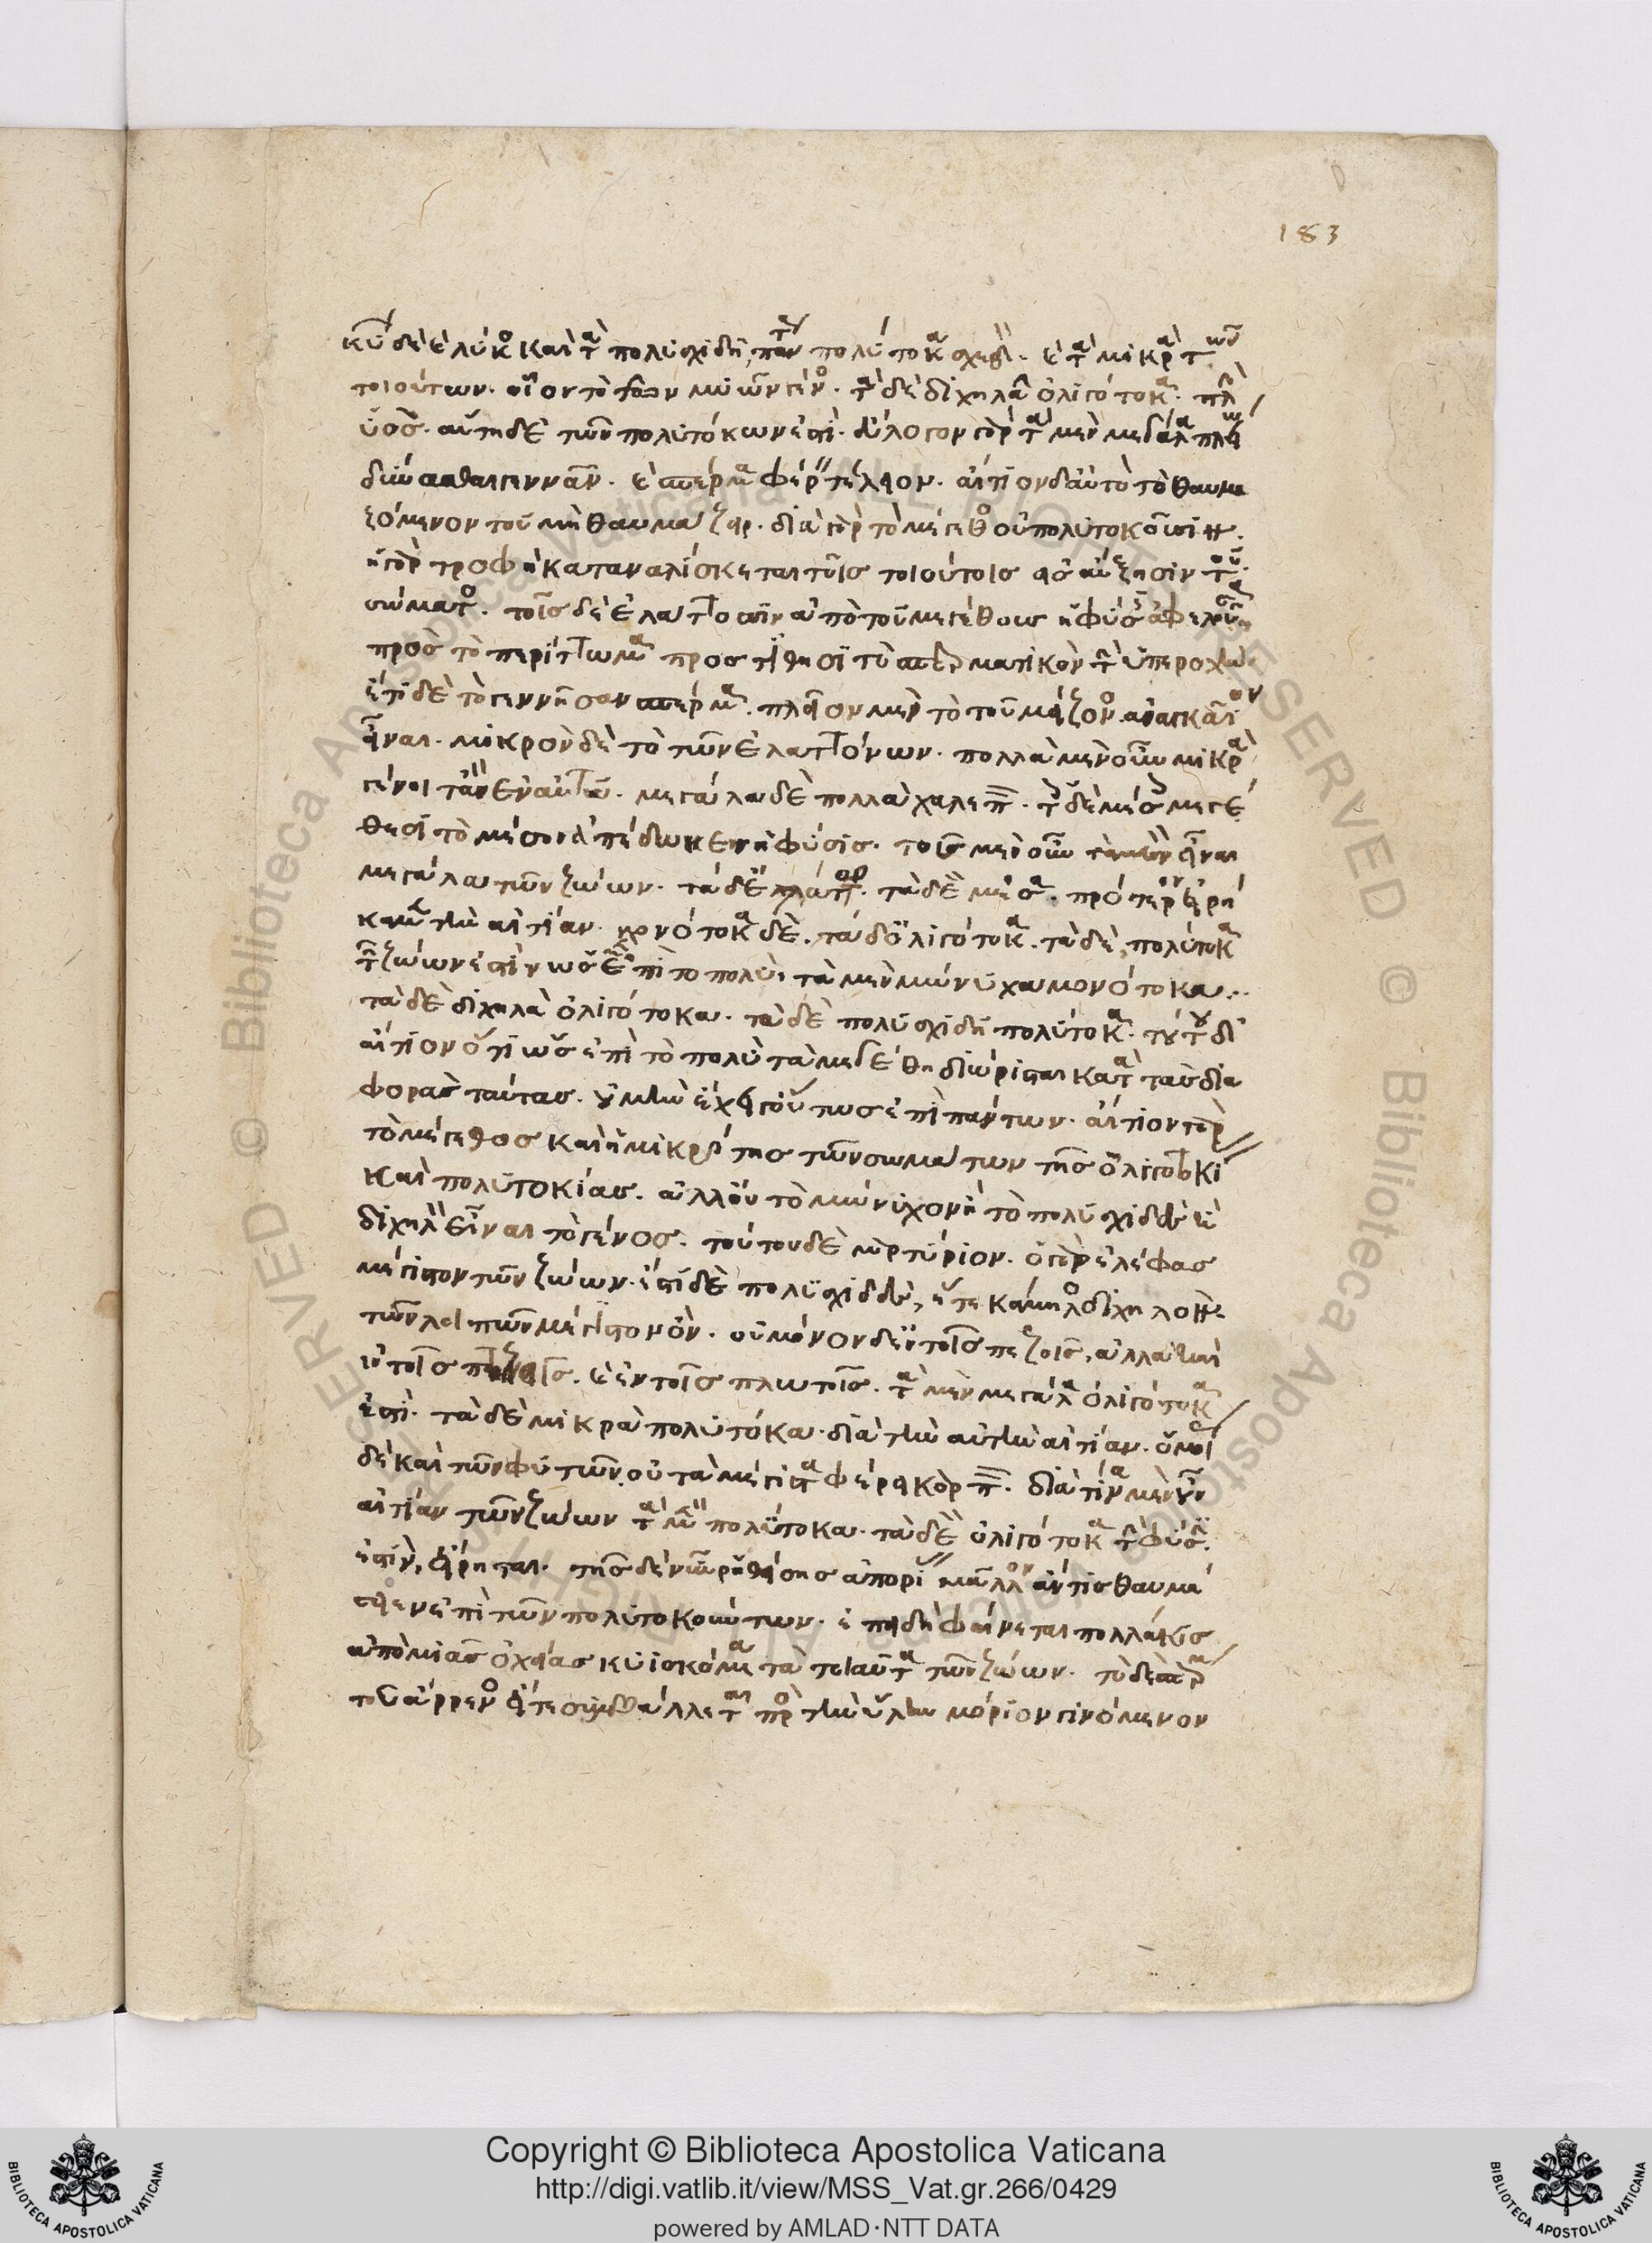 183
κύων δὲ λύκος καὶ τὰ πολυσχιδῆ πάντα πολυτόκα σχεδόν. καὶ τὰ μικρὰ τῶν
τοιούτων. οἷον τὸ τῶν μυῶν γένος. τὰ δὲ διχηλᾶ ὀλιγοτόκα. πλὴν
ὑός. αὕτη δὲ τῶν πολυτόκων ἐστί. εὔλογον γὰρ τὰ μὲν μεγάλα πλείω
δύνασθαι γεννᾶν. καὶ σπέρμα φέρειν πλεῖον. αἴτιον δ' αὐτὸ τὸ θαυμα
ζόμενον τοῦ μὴ θαυμάζειν. διὰ γὰρ τὸ μέγεθος οὐ πολυτοκοῦσιν.
ἡ γὰρ τροφὴ καταναλίσκεται τοῖς τοιούτοις εἰς αὔξησιν τοῦ
σώματος. τοῖς δὲ ἐλάττοσιν ἀπὸ τοῦ μεγέθους ἡ φύσις ἀφελοῦσα
πρὸς τὸ περίττωμα προστίθησι τὸ σπερματικὸν τὴν ὑπεροχήν.
ἔτι δὲ τὸ γεννῆσαν σπέρμα. πλεῖον μὲν τὸ τοῦ μείζονος ἀναγκαῖον
εἶναι. μικρὸν δὲ τὸ τῶν ἐλαττόνων. πολλὰ μὲν οὖν μικρὰ
γένοιτ' ἂν ἐν αὐτῷ. μεγάλα δὲ πολλὰ χαλεπόν. τοῖς δὲ μέσοις μεγέ
θεσι τὸ μέσον ἀπέδωκεν ἡ φύσις. τοῦ μὲν οὖν τὰ μὲν εἶναι
μεγάλα τῶν ζῴων. τὰ δὲ ἐλάττω. τὰ δὲ μέσα. πρότερον εἰρή
καμεν τὴν αἰτίαν. μονοτόκα δὲ. τὰ δ' ὀλιγοτόκα. τὰ δὲ, πολυτόκα
τῶν ζῴων ἐστὶν ὡς ἐπὶ τὸ πολύ. τὰ μὲν μώνυχα μονοτόκα.
τὰ δὲ διχηλὰ ὀλιγοτόκα. τὰ δὲ πολυσχιδῆ πολυτόκα. τούτου δ'
αἴτιον ὅτι ὡς ἐπὶ τὸ πολὺ τὰ μεγέθη διώρισται κατὰ τὰς δια
φορὰς ταύτας. οὐ μὴν ἔχει γ' οὕτως ἐπὶ πάντων. αἴτιον γὰρ
τὸ μέγεθος καὶ ἡ μικρότης τῶν σωμάτων τῆς ὀλιγοτοκίας
καὶ πολυτοκίας. ἀλλ' οὐ τὸ μώνυχον ἢ τὸ πολυσχιδὲς ἢ
διχηλὸν εἶναι τὸ γένος. τούτου δὲ μαρτύριον. ὁ γὰρ ἐλέφας
μέγιστον τῶν ζῴων. ἐστὶ δὲ πολυσχιδές, ἥ τε κάμηλος διχηλὸν
τῶν λοιπῶν μέγιστον ὄν. οὐ μόνον δ' ἐν τοῖς πεζοῖς, ἀλλὰ καὶ
ἐν τοῖς πτηνοῖς. καὶ ἐν τοῖς πλωτοῖς. τὰ μὲν μεγάλα ὀλιγοτόκα
ἐστί. τὰ δὲ μικρὰ πολυτόκα. διὰ τὴν αὐτὴν αἰτίαν. ὁμοίως
δὲ καὶ τῶν φυτῶν. οὐ τὰ μέγιστα φέρει καρπόν. διὰ τίνα μὲν οὖν
αἰτίαν τῶν ζῴων τὰ μὲν πολυτόκα. τὰ δὲ ὀλιγοτόκα τὴν φύσιν
ἐστὶν, εἴρηται. τῆς δὲ νῦν ῥηθείσης ἀπορίας μᾶλλον ἄν τις θαυμά
σειεν ἐπὶ τῶν πολυτοκούντων. ἐπειδὴ φαίνεται πολλάκις
ἀπὸ μιᾶς ὀχείας κυϊσκόμενα τὰ τοιαῦτα τῶν ζῴων. τὸ δὲ σπέρμα
τοῦ ἄρρενος εἴτε συμβάλλεται πρὸς τὴν ὕλην μόριον γινόμενον
Copyright © Biblioteca Apostolica Vaticana
http://digi.vatlib.it/view/MSS_Vat.gr.266/0429
powered by AMLAD·NTT DATA